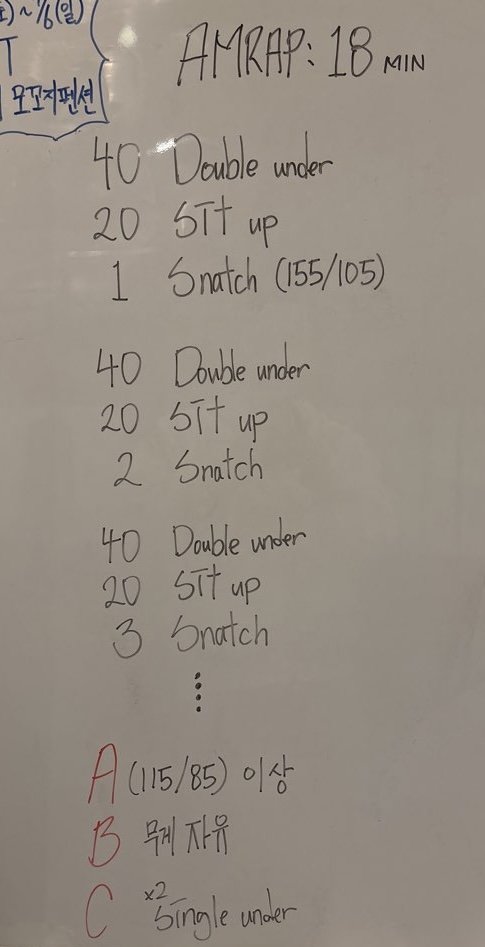 ~ 1/6(일)
T
모꼬지펜션
AMRAP: 18 MIN
40 Double under
20 Sit up
1 Snatch (155/105)
40 Double under
20 Sit up
2 Snatch
40 Double under
20 Sit up
3 Snatch
⋮
A (115/85) 이상
B 무게 자유
C x2 Single under